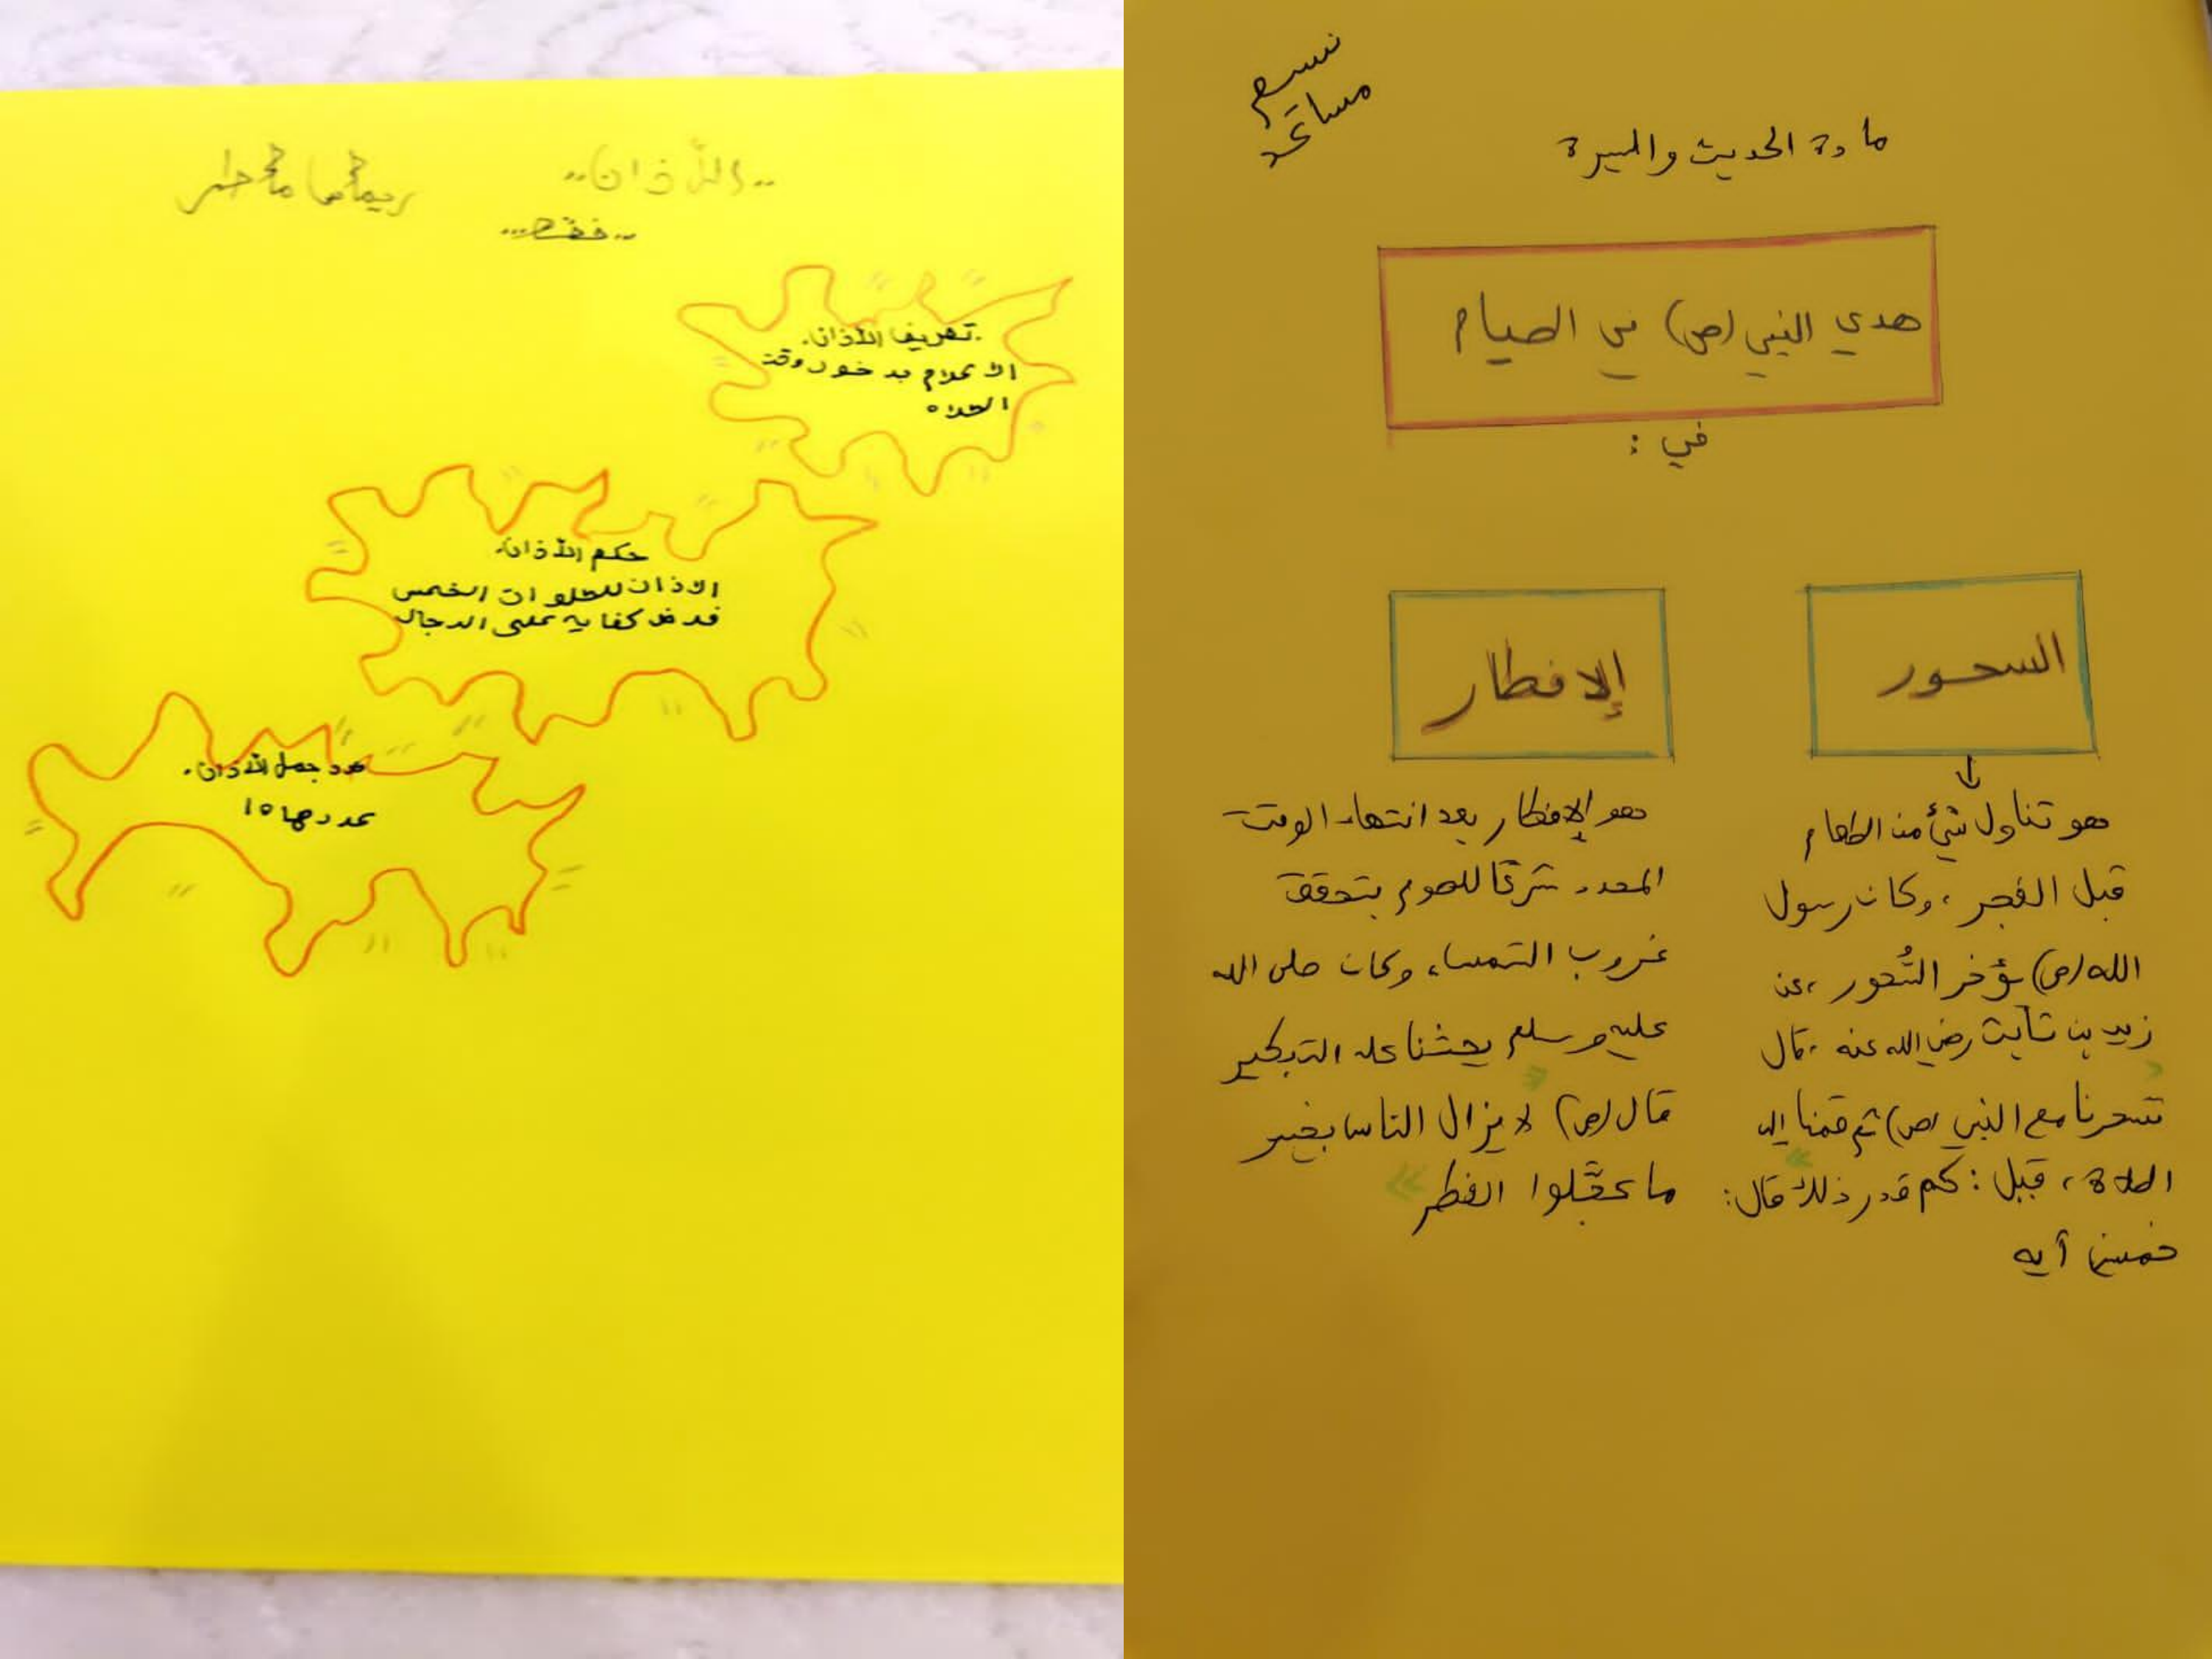 ..الأذان..
..فقه..
تعريف الأذان.
الاعلام بدخول وقت
الصلاه
حكم الأذان.
الاذان للصلوات الخمس
فرض كفايه على الرجال
عدد جمل الأذان.
عددها ١٥
نسيم
مساعد
مادة الحديث والسيرة
هدي النبي (ص) في الصيام
في :
السحور
هو تناول شئ من الطعام
قبل الفجر ، وكان رسول
الله (ص) يؤخر السُحور ، عن
زيد بن ثابت رضي الله عنه ، قال
تسحرنا مع النبي (ص) ثم قمنا إلى
الصلاة ، قيل : كم قدر ذلك قال :
خمسين آيه
الإفطار
هو الإفطار بعد انتهاء الوقت
المحدد شرعًا للصوم بتحقق
غروب الشمس ، وكان صلى الله
عليه وسلم يحثنا على التبكير
قال (ص) لا يزال الناس بخير
ما عجّلوا الفطر